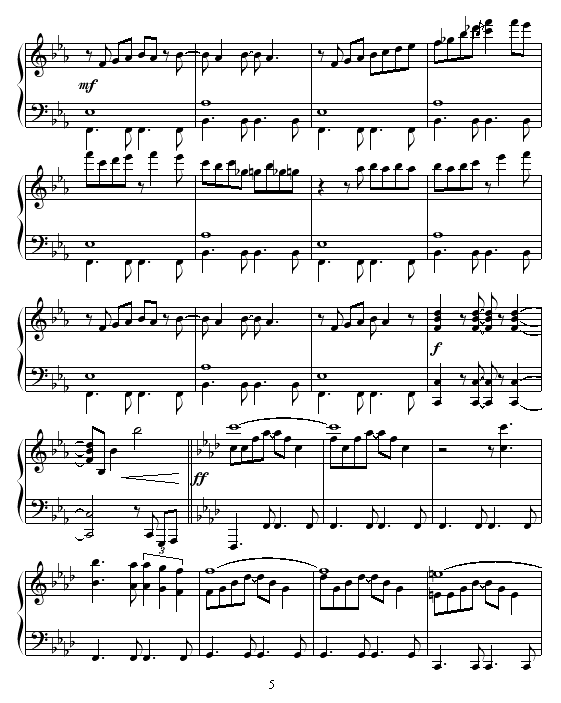 mf
f
ff
3
3
5